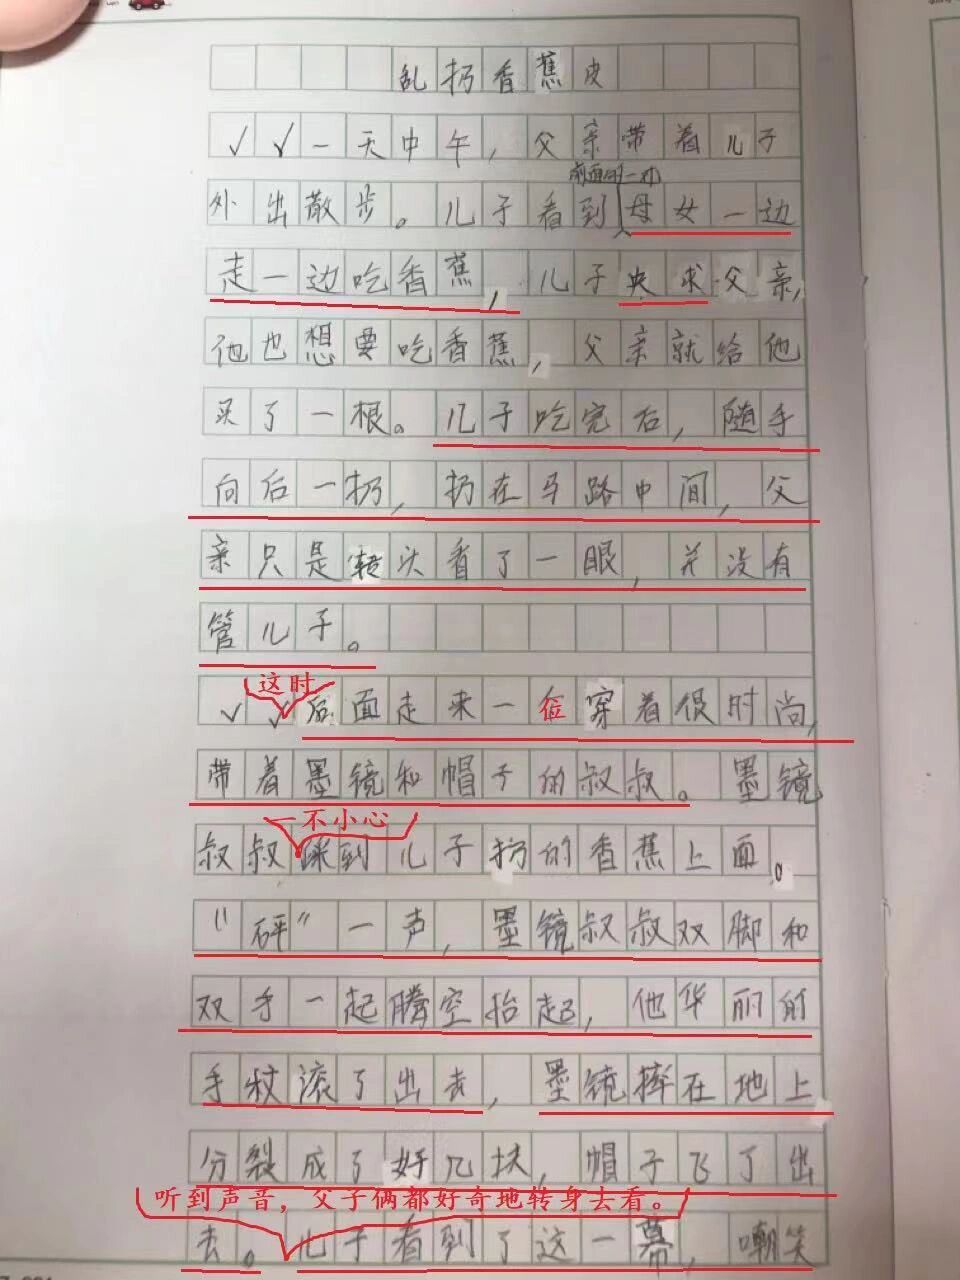 乱扔香蕉皮
一天中午，父亲带着儿子
前面的一对
外出散步。儿子看到母女一边
走一边吃香蕉，儿子央求父亲，
他也想要吃香蕉，父亲就给他
买了一根。儿子吃完后，随手
向后一扔，扔在马路中间，父
亲只是转头看了一眼，并没有
管儿子。
这时
后面走来一位穿着很时尚，
带着墨镜和帽子的叔叔。墨镜
一不小心
叔叔踩到儿子扔的香蕉上面。
“砰”一声，墨镜叔叔双脚和
双手一起腾空抬起，他华丽的
手杖滚了出去，墨镜摔在地上
分裂成了好几块，帽子飞了出
听到声音，父子俩都好奇地转身去看。
去。儿子看到了这一幕，嘲笑